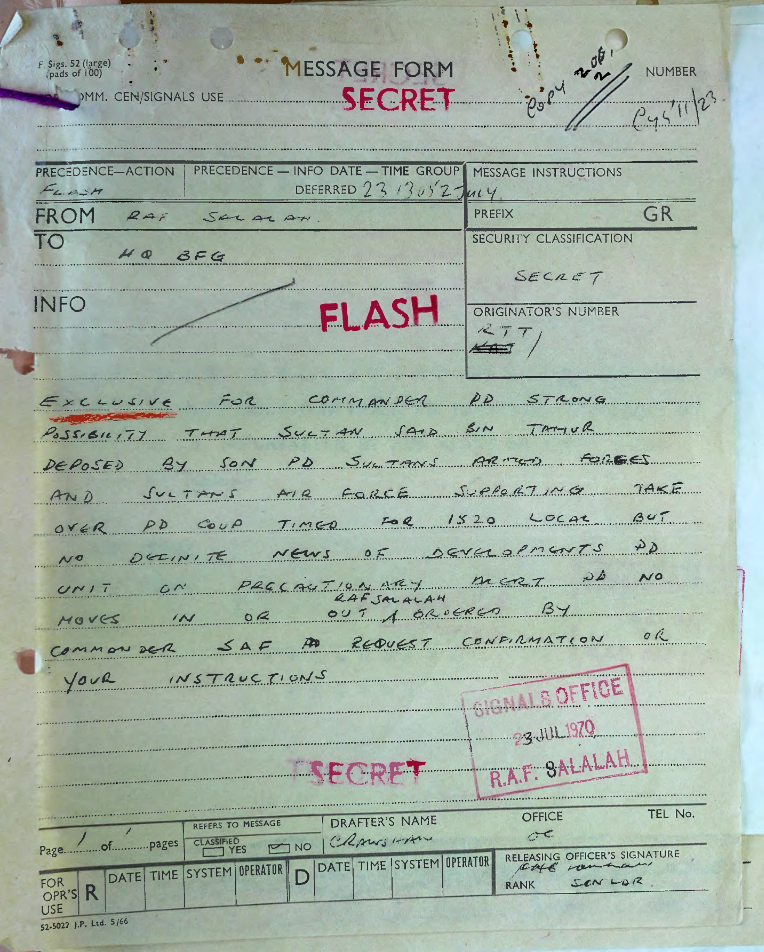 F. Sigs. 52 (large)
(pads of 100)
MESSAGE FORM
SECRET
NUMBER
COPY 2 OF 2
Cys 11/23
OMM. CEN/SIGNALS USE
PRECEDENCE—ACTION
FLASH
PRECEDENCE — INFO DATE — TIME GROUP
DEFERRED 231305Z July.
MESSAGE INSTRUCTIONS
FROM RAF SALALAH.
PREFIX GR
TO
HQ BFG
SECURITY CLASSIFICATION
SECRET
INFO
FLASH
ORIGINATOR'S NUMBER
RTT /
EXCLUSIVE FOR COMMANDER PD STRONG
POSSIBILITY THAT SULTAN SAID BIN TAMUR
DEPOSED BY SON PD SULTANS ARMED FORCES
AND SULTANS AIR FORCE SUPPORTING TAKE
OVER PD COUP TIMED FOR 1520 LOCAL BUT
NO DEFINITE NEWS OF DEVELOPMENTS PD
UNIT ON PRECAUTIONARY ALERT PD NO
RAF SALALAH
MOVES IN OR OUT ORDERED BY
COMMANDER SAF PD REQUEST CONFIRMATION OR
YOUR INSTRUCTIONS
SIGNALS OFFICE
23 JUL 1970
R.A.F. SALALAH
SECRET
Page 1 of 1 pages
REFERS TO MESSAGE
CLASSIFIED
YES NO
DRAFTER'S NAME
CRAWSHAW
OFFICE
OC
TEL No.
FOR
OPR'S
USE
R DATE TIME SYSTEM OPERATOR D DATE TIME SYSTEM OPERATOR
RELEASING OFFICER'S SIGNATURE
RANK SQN LDR
52-5027 J.P. Ltd. 5/66